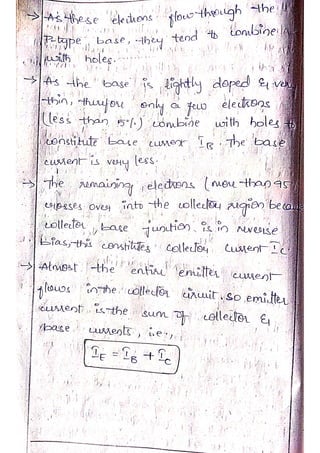 → As these electrons flow through the
P-type base, they tend to combine
with holes.
→ As the base is lightly doped & very
thin, therefore only a few electrons
(less than 5%) combine with holes to
constitute base current I_B. The base
current is very less.
→ The remaining electrons (more than 95
crosses over into the collector region
collector, base junction is in reverse
bias, this constitutes collector current I_C.
→ Almost the entire emitter current
flows in the collector circuit. so emitter
current is the sum of collector &
base currents, i.e.,
I_E = I_B + I_C